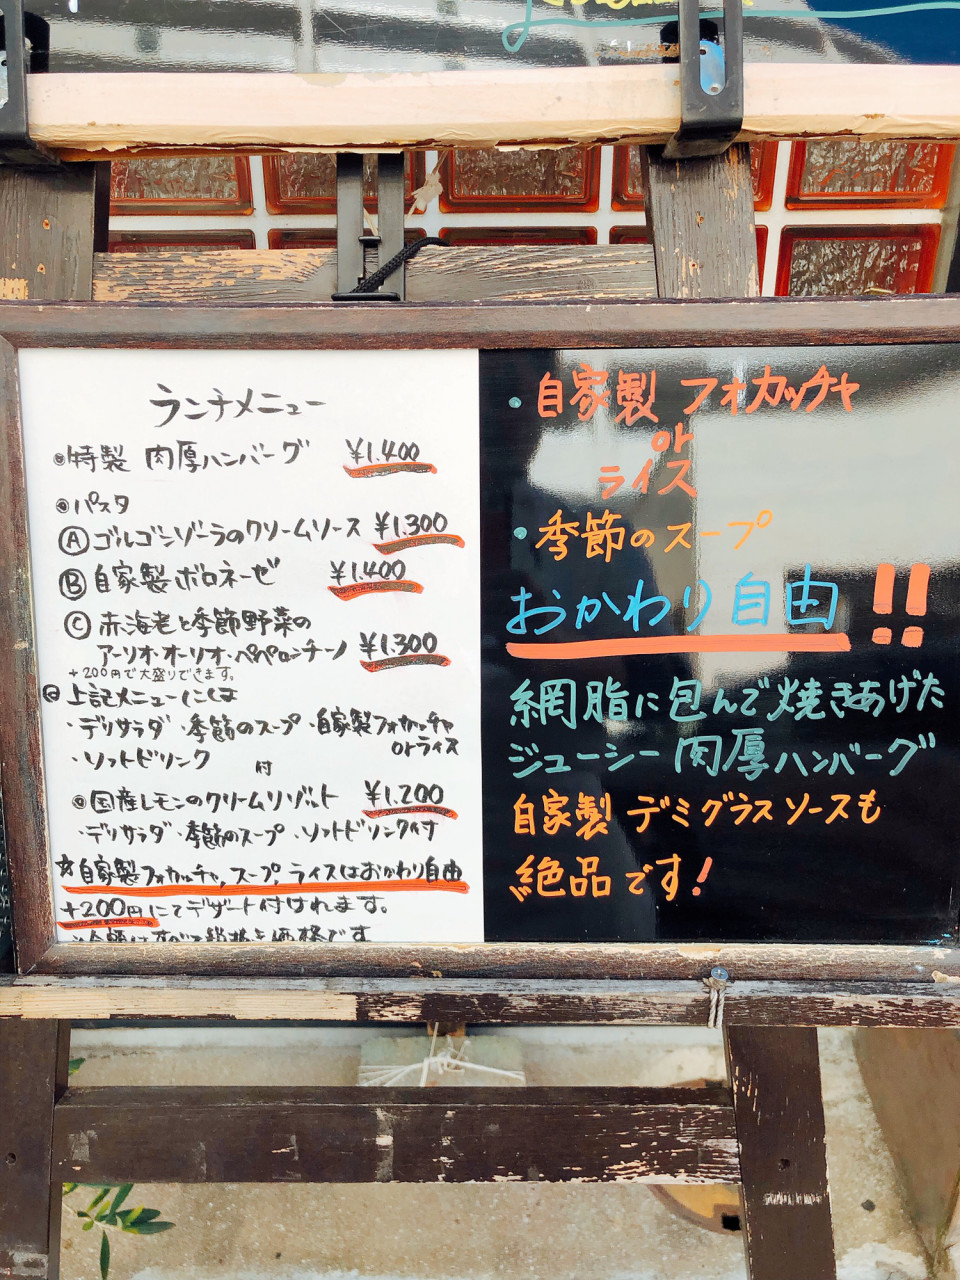 ランチメニュー
◉特製 肉厚ハンバーグ ¥1.400
◉パスタ
Ⓐゴルゴンゾーラのクリームソース ¥1.300
Ⓑ自家製ボロネーゼ ¥1.400
Ⓒ赤海老と季節野菜の
アーリオ・オーリオ・ペペロンチーノ ¥1.300
+200円で大盛りできます。
◉上記メニューには
・デリサラダ・季節のスープ・自家製フォカッチャ
orライス
・ソフトドリンク 付
◉国産レモンのクリームリゾット ¥1.200
・デリサラダ・季節のスープ・ソフトドリンク付
☆自家製フォカッチャ、スープ、ライスはおかわり自由
+200円にてデザート付けれます。
・自家製 フォカッチャ
or
ライス
・季節のスープ
おかわり自由!!
網脂に包んで焼きあげた
ジューシー肉厚ハンバーグ
自家製 デミグラスソースも
絶品です!